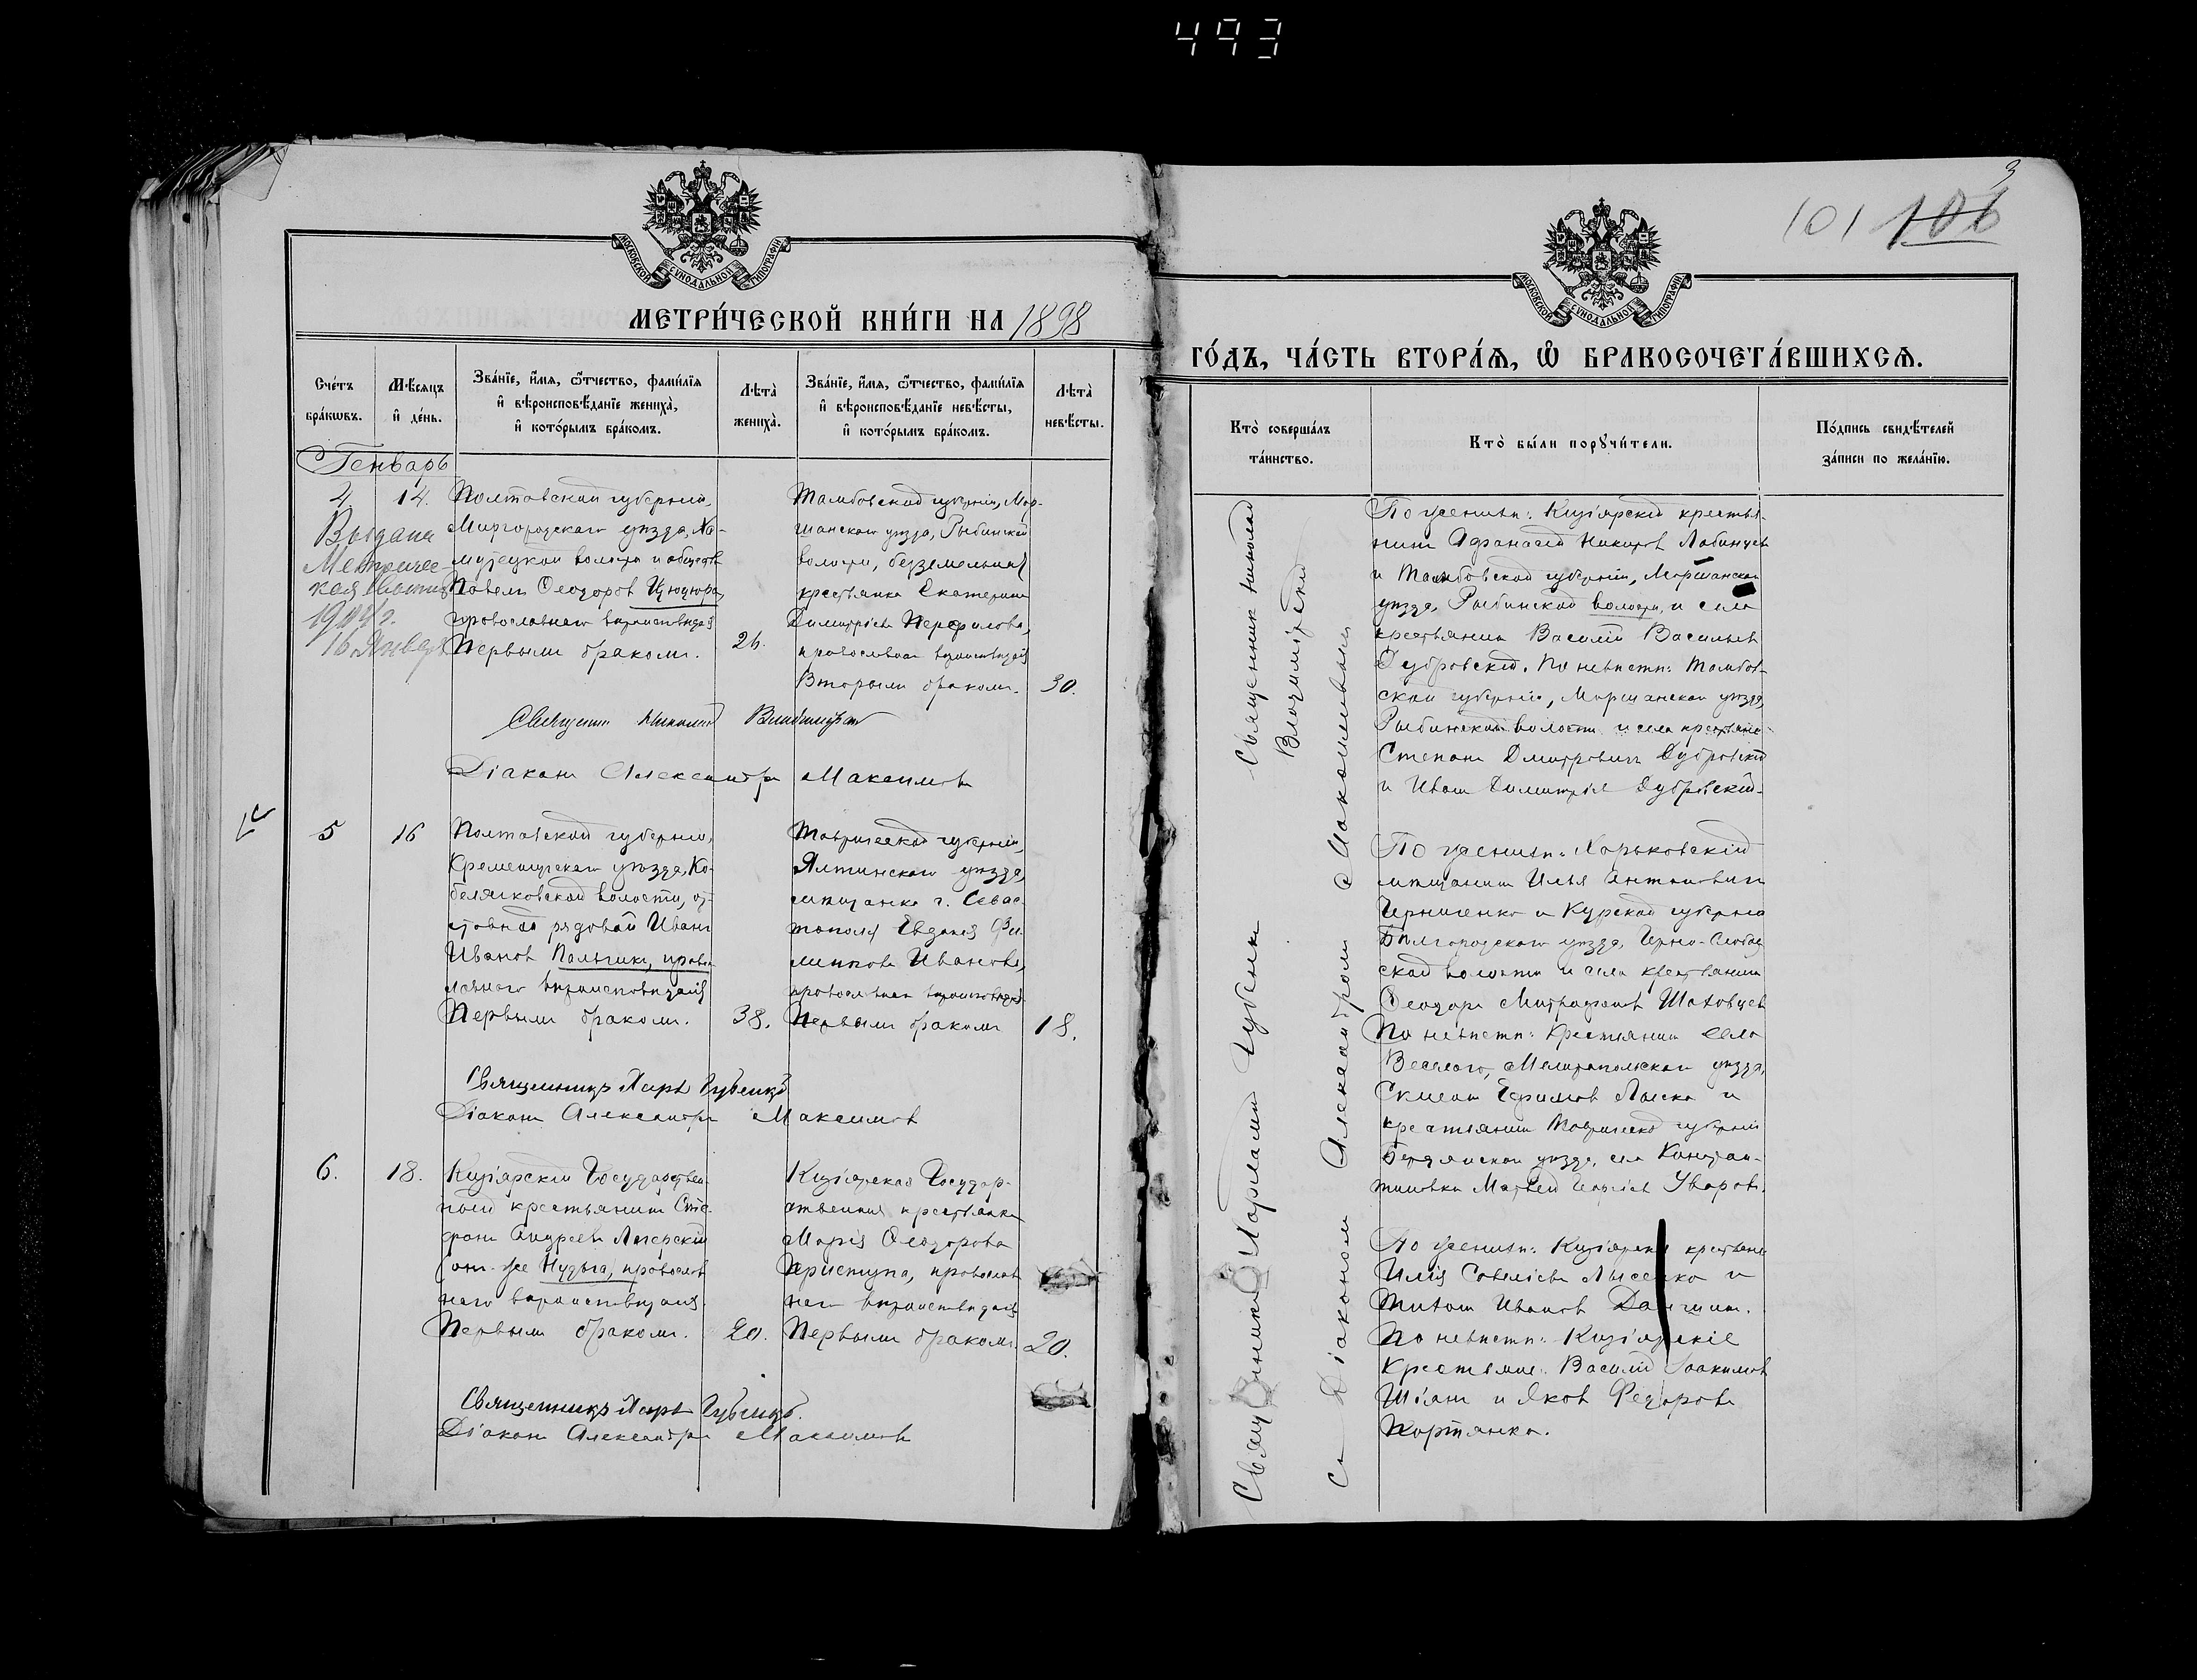 493
3
101 106
МОСКОВСКОЙ СѴНОДАЛЬНОЙ ТИПОГРАФІИ
МОСКОВСКОЙ СѴНОДАЛЬНОЙ ТИПОГРАФІИ
МЕТРИ́ЧЕСКОЙ КНИ́ГИ НА 1898
ГО́ДЪ, ЧА́СТЬ ВТОРА́Ѧ, Ѽ БРАКОСОЧЕТА́ВШИХСѦ.
Сче́тъ
бра́кѡвъ.
Мѣ́сяцъ
и҆ де́нь.
Зва́нїе, и҆́мѧ, ѻ҆́тчество, фами́лїѧ
и҆ вѣроисповѣ́данїе жениха̀,
и҆ кото́рымъ бра́комъ.
Лѣ́та
жениха̀.
Зва́нїе, и҆́мѧ, ѻ҆́тчество, фами́лїѧ
и҆ вѣроисповѣ́данїе невѣ́сты,
и҆ кото́рымъ бра́комъ.
Лѣ́та
невѣ́сты.
Кто̀ соверша́лъ
та́инство.
Кто̀ бы́ли порꙋчи́тели.
По́дпись свидѣ́телей
за́писи по жела́нїю.
Генварь
4
14.
Выдана
Метричес-
кая
16 Января
Полтавской губерніи,
Миргородскаго уѣзда, Хо-
мутецкой волости и общества
Павелъ Ѳеодоровъ Цюцюра,
православнаго вѣроисповѣданія
Первымъ бракомъ.
26.
Тамбовской губерніи, Мор-
шанскаго уѣзда, Рыбинской
волости, безземельная
крестьянка Екатерина
Димитріева Перфилова,
православнаго вѣроисповѣданія
Вторымъ бракомъ.
30.
Священникъ Николай
Владимірскій
По женихѣ: Кизіярскій крестья-
нинъ Афанасій Никитовъ Лабинцевъ
и Тамбовской губерніи, Моршанскаго
уѣзда, Рыбинской волости, и села
крестьянинъ Василій Васильевъ
Дубровскій. По невѣстѣ: Тамбов-
ской губерніи, Моршанскаго уѣзда,
Рыбинской волости и села крестьяне
Степанъ Дмитровичъ Дубровскій
и Иванъ Димитріевъ Дубровскій.
Священникъ Николай Владимірскій
Діаконъ Александръ Максимовъ
5
16
Полтавской губерніи,
Кременчугскаго уѣзда, Ко-
белячковской волости, от-
ставной рядовой Иванъ
Ивановъ Пальчикъ, право-
славнаго вѣроисповѣданія
Первымъ бракомъ.
38.
Таврической губерніи,
Ялтинскаго уѣзда,
мѣщанка г. Севас-
тополя Евдокія Фи-
липпова Иванова,
православнаго вѣроисповѣданія
Первымъ бракомъ
18.
Священникъ Харлампій Губенко
съ Діакономъ Александромъ Максимовымъ
По женихѣ: Харьковскій
мѣщанинъ Илья Антоновичъ
Черниченко и Курской губерніи
Бѣлгородскаго уѣзда, Черно-
ской волости и села крестьянинъ
Ѳеодоръ Митрофановъ Шаховцевъ
По невѣстѣ: Крестьянинъ села
Веселаго, Мелитопольскаго уѣзда,
Ефимовъ и
крестьянинъ Таврической губерніи
Бердянскаго уѣзда, села Констан-
тиновки Матвѣй Георгіевъ Уваровъ.
Священникъ Харл. Губенко
Діаконъ Александръ Максимовъ
6.
18.
Кизіярскій Государствен-
ный крестьянинъ Сте-
фанъ Андреевъ
онъ-же Нудьга, православ-
наго вѣроисповѣданія.
Первымъ бракомъ.
20.
Кизіярская Государ-
ственная крестьянка
Марія Ѳеодорова
Приступа, православ-
наго вѣроисповѣданія
Первымъ бракомъ.
20.
По женихѣ: Кизіярскіе крестьяне
Илія Савеліевъ Лысенко и
Титъ Ивановъ
По невѣстѣ: Кизіярскіе
Крестьяне: Василій Іоакимовъ
Шіянъ и Яковъ Ѳедоровъ
Портянка.
Священникъ Харл. Губенко.
Діаконъ Александръ Максимовъ